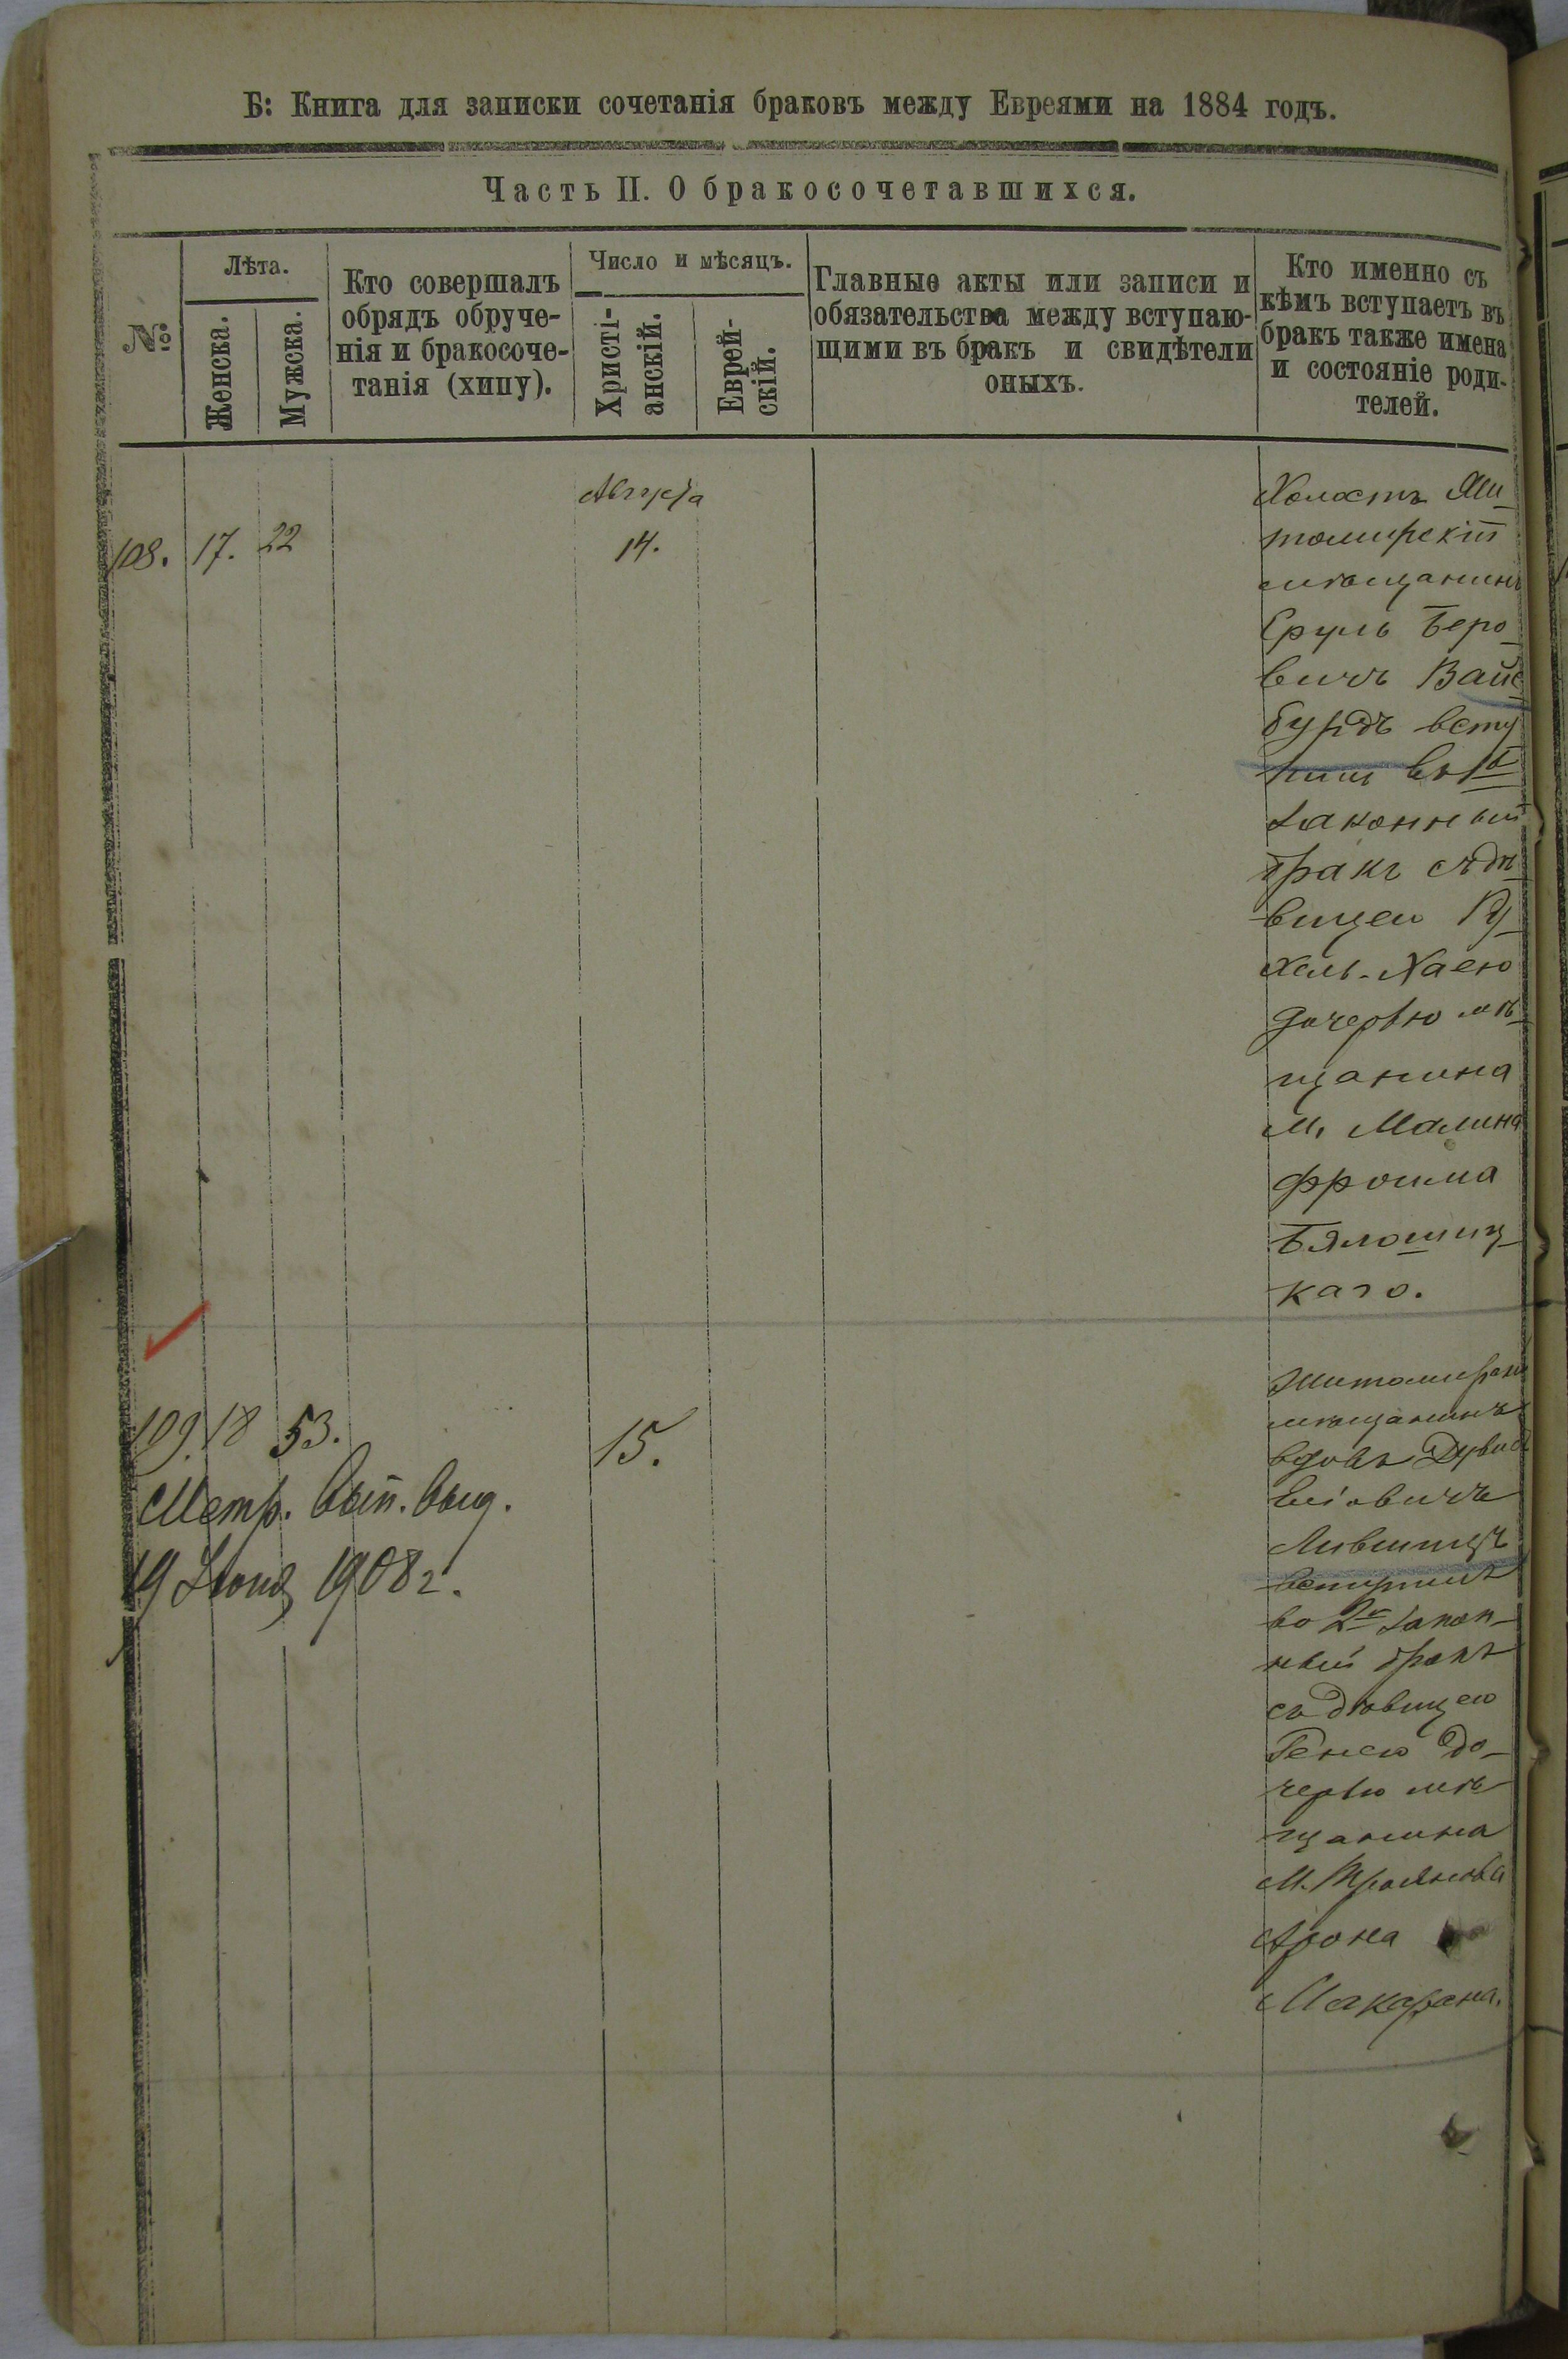 Б: Книга для записки сочетанія браковъ между Евреями на 1884 годъ.
Часть II. О бракосочетавшихся.
№
Лѣта.
Женска.
Мужска.
Кто совершалъ
обрядъ обруче-
нія и бракосоче-
танія (хипу).
Число и мѣсяцъ.
Христі-
анскій.
Еврей-
скій.
Главные акты или записи и
обязательства между вступаю-
щими въ бракъ и свидѣтели
оныхъ.
Кто именно съ
кѣмъ вступаетъ въ
бракъ также имена
и состояніе роди-
телей.
Августа
108. 17. 22 14.
Холостъ Жи-
томирскій
мѣщанинъ
Сруль Беро-
вичъ Вайс-
бурдъ всту
пил въ 1й
законный
бракъ съ дѣ-
вицею Ру-
хель-Хаею
дочерью мѣ-
щанина
м. Малина
Фроима
Бялошиц-
каго.
109. 18 53. 15.
Метр. вып. выд.
19 Іюня 1908 г.
Житомирскі
мѣщанинъ
вдовъ Дувид
Лившицъ
вступилъ
во 2й закон-
ный бракъ
съ дѣвицею
Генею до-
черью мѣ-
щанина
м. Троянова
Арона
Макарона.